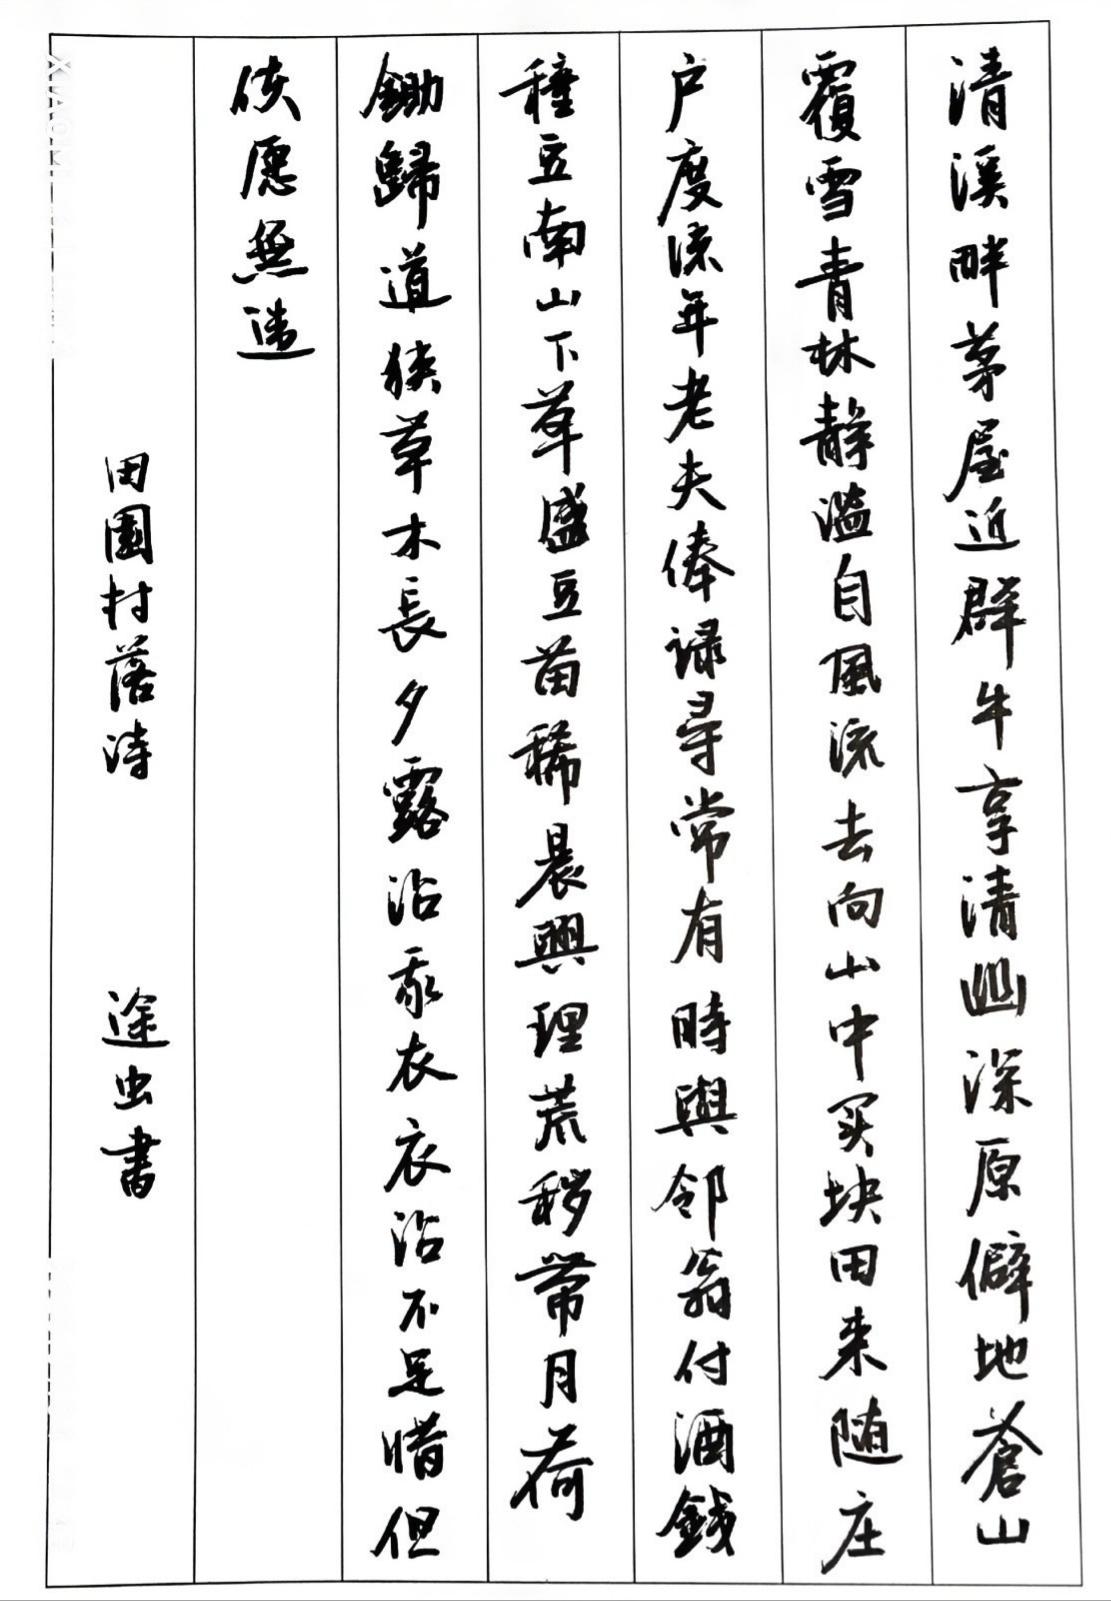 清溪畔茅屋近群牛享清幽深原僻地蒼山
覆雪青林静溢自風流去向山中买块田来随庄
户度流年老夫俸禄尋常有時與邻翁付酒錢
種豆南山下草盛豆苗稀晨興理荒秽带月荷
鋤歸道狭草木長夕露沾我衣衣沾不足惜但
使愿無违
田園村落诗
途虫書